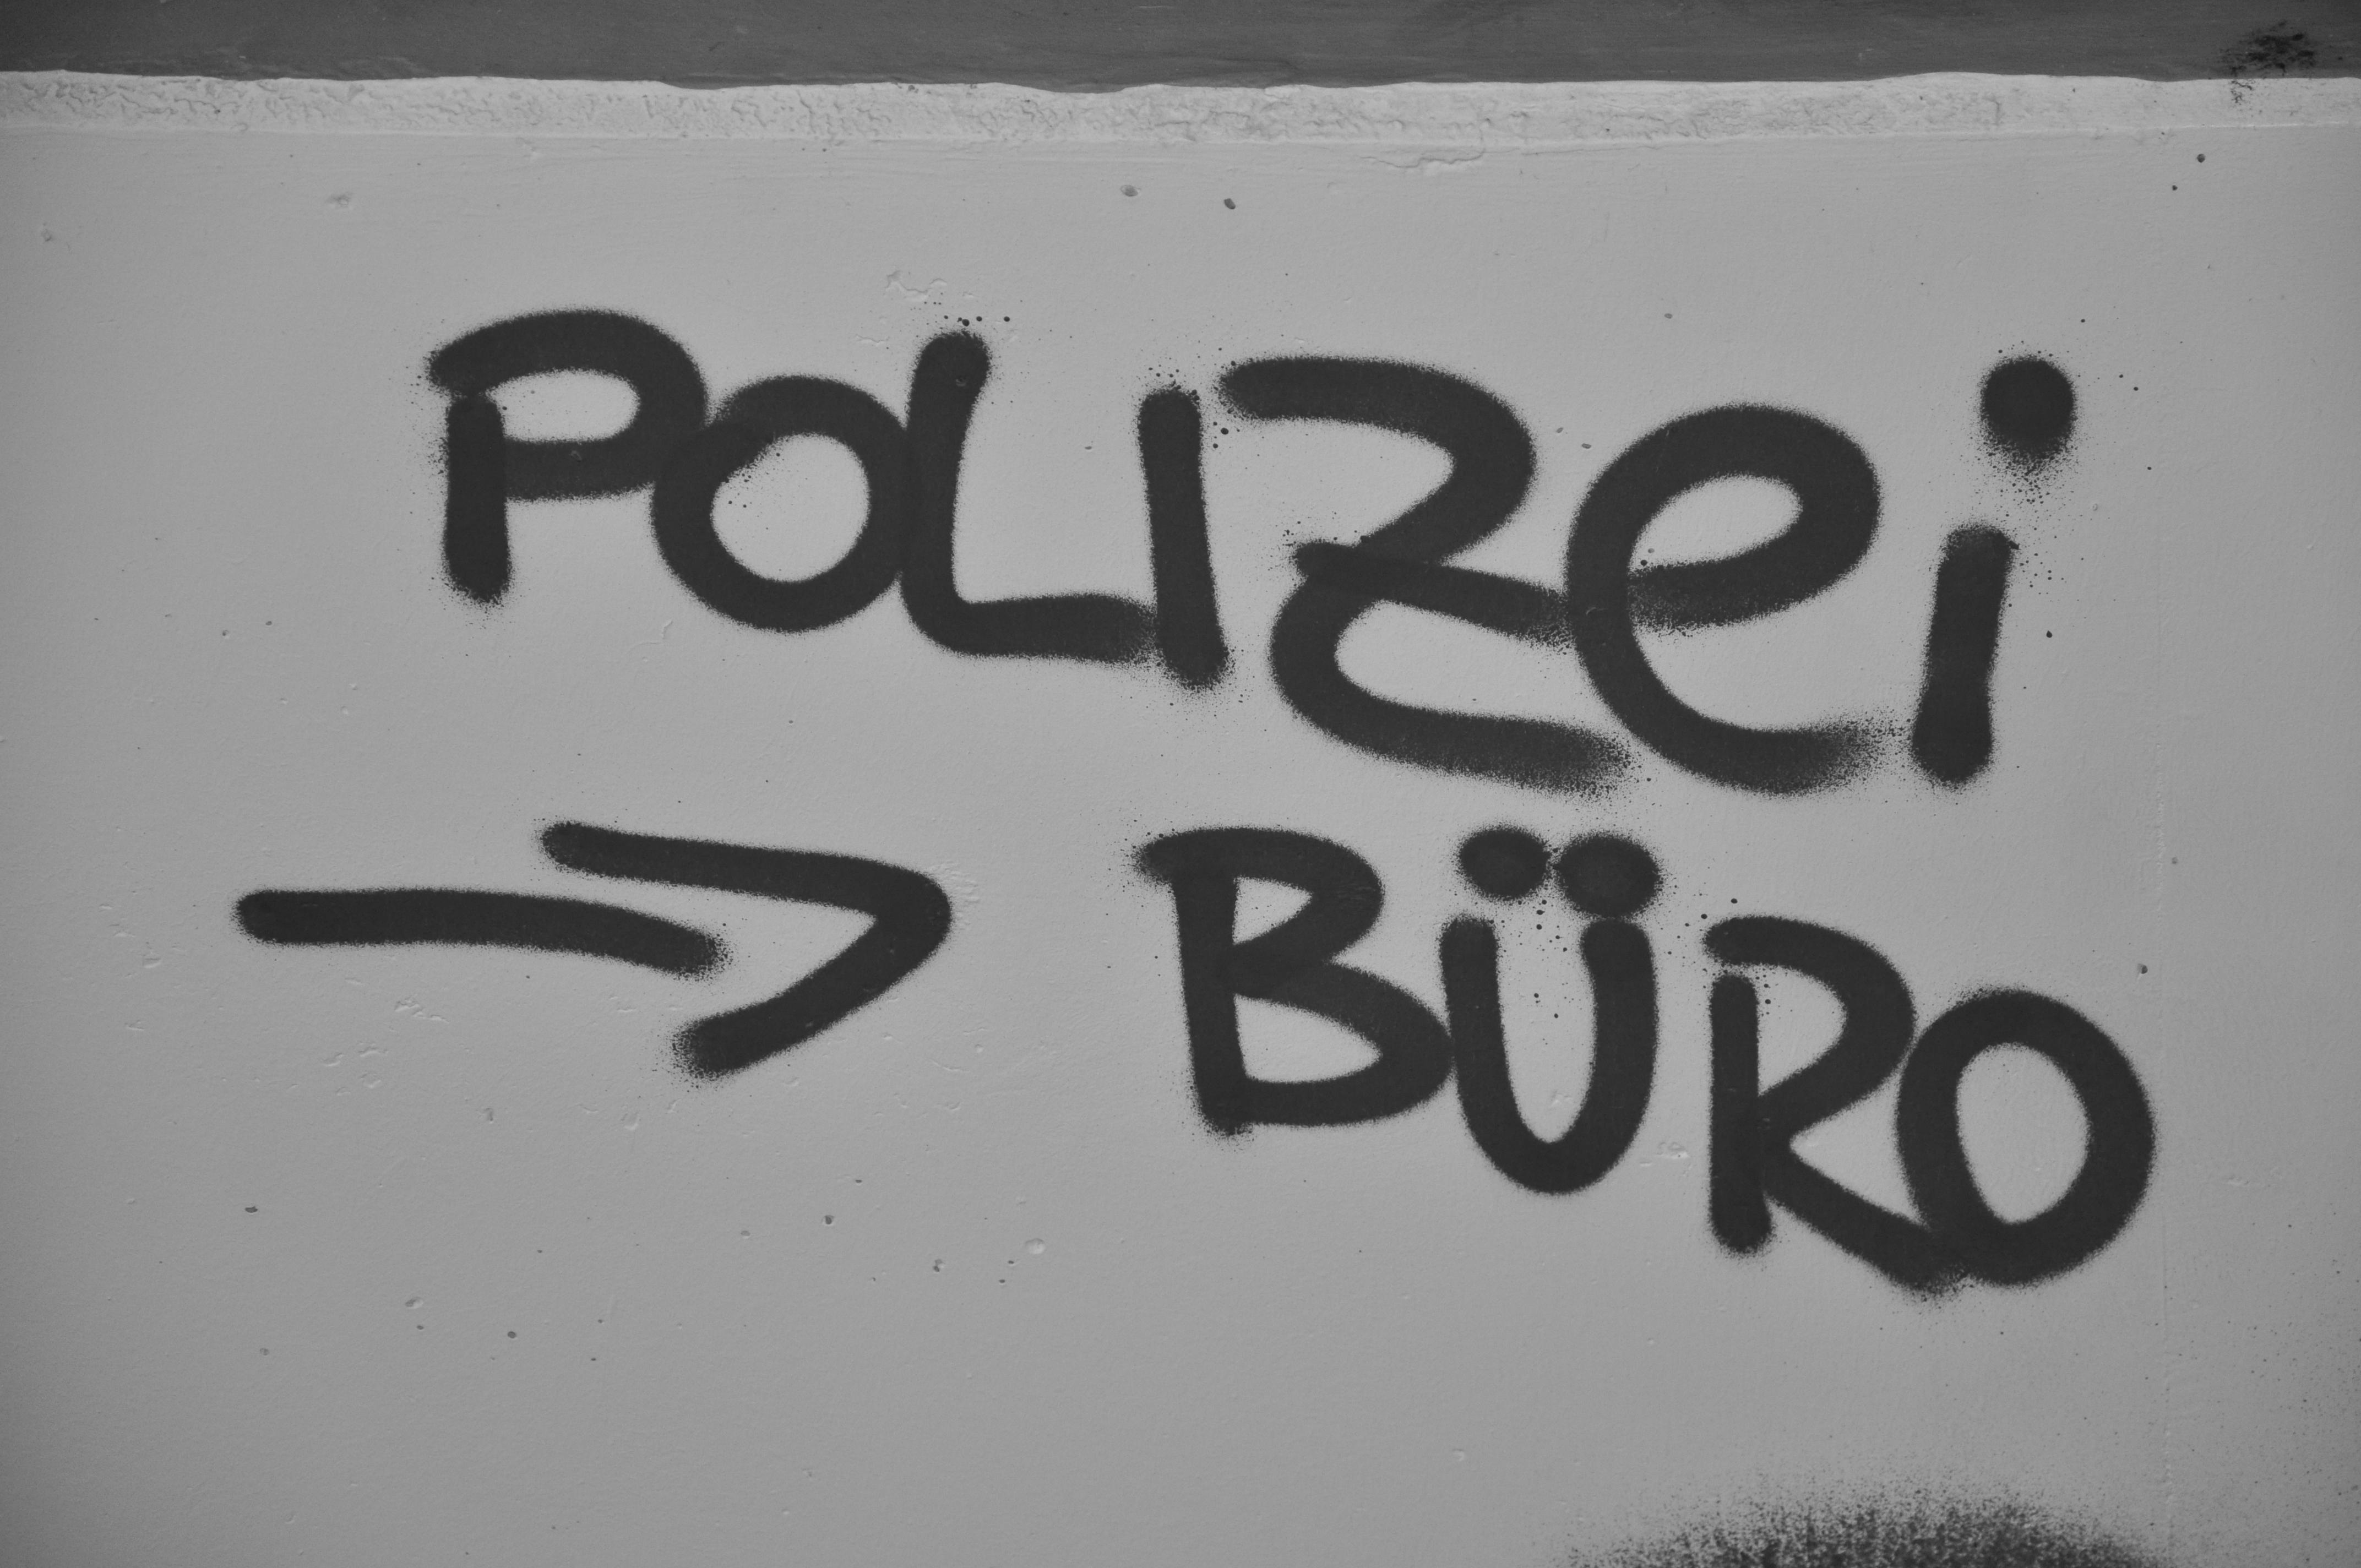 POLIZei
→ BÜRO